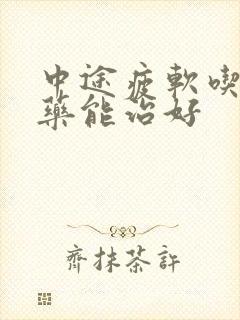 中途疲軟喫
藥能治好
齊抹茶許